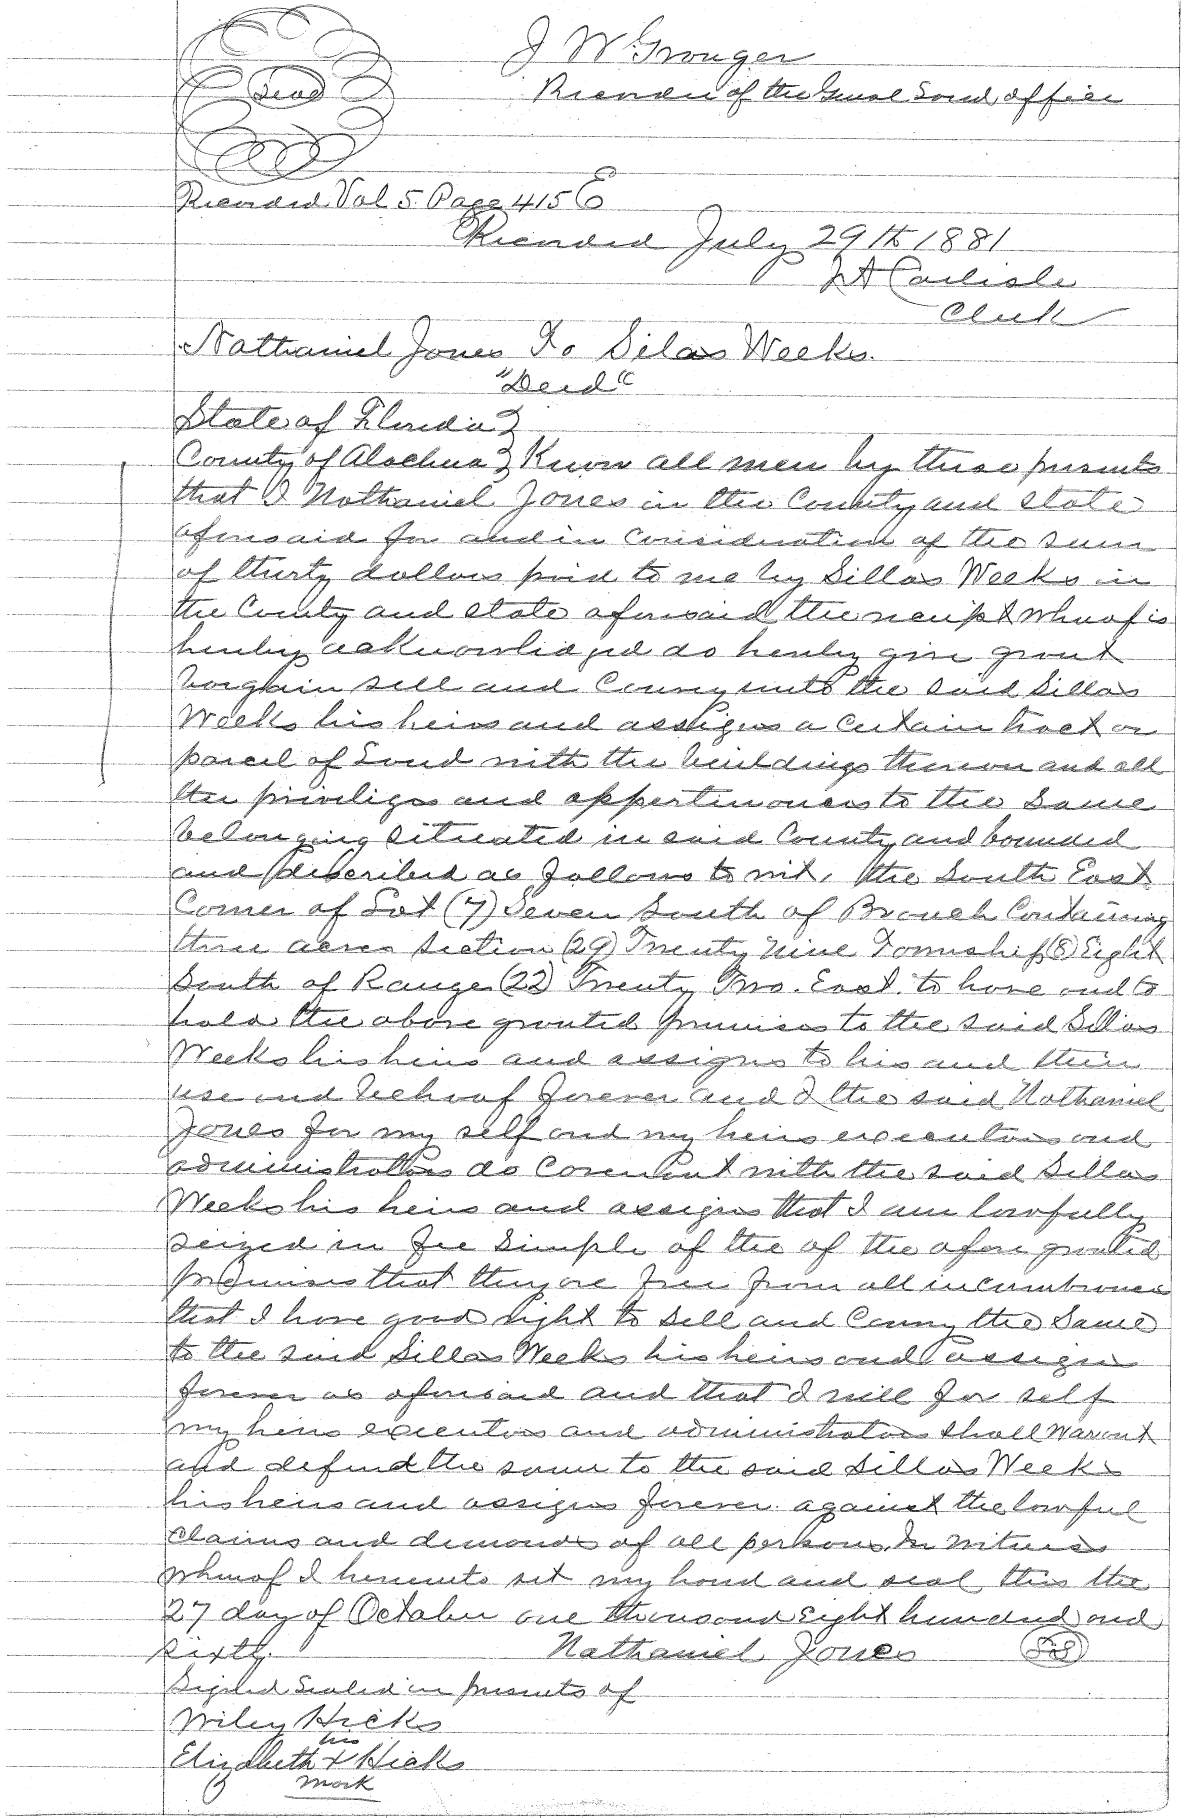 J W Granger
Seal
Recorder of the General Land office
Recorded Vol 5. Page 415 E
Recorded July 29th 1881
J A Carlisle
Clerk
Nathaniel Jones To Silas Weeks.
"Deed"
State of Florida }
County of Alachua } Know all men by these presents
that I Nathaniel Jones in the County and state
aforesaid for and in consideration of the sum
of thirty dollars paid to me by Sillas Weeks in
the County and state aforesaid the receipt whereof is
hereby acknowledged do hereby give grant
bargain sell and Convey unto the said Sillas
Weeks his heirs and assigns a certain tract or
parcel of Land with the buildings thereon and all
the priviliges and appertinances to the same
belonging situated in said County and bounded
and described as follows to wit, the South East
Corner of Lot (7) Seven South of Branch Containing
three acres Section (29) Twenty Nine Township (8) Eight
South of Range (22) Twenty Two. East. to have and to
hold the above granted premises to the said Sillas
Weeks his heirs and assigns to his and their
use and behoof forever and I the said Nathaniel
Jones for my self and my heirs executors and
administrators do Covenant with the said Sillas
Weeks his heirs and assigns that I am lawfully
seized in fee Simple of the of the afore granted
premises that they are free from all incumbrances
that I have good right to sell and Convey the Same
to the said Sillas Weeks his heirs and assigns
forever as aforesaid and that I will for self
my heirs executors and administrators shall warant
and defend the same to the said Sillas Weeks
his heirs and assigns forever against the lawful
claims and demands of all persons. In witness
whereof I hereunto set my hand and seal this the
27 day of October one thousand Eight hundred and
sixty. Nathaniel Jones LS
Signed Sealed in presents of
Wiley Hicks
his
Elizabeth x Hicks
mark